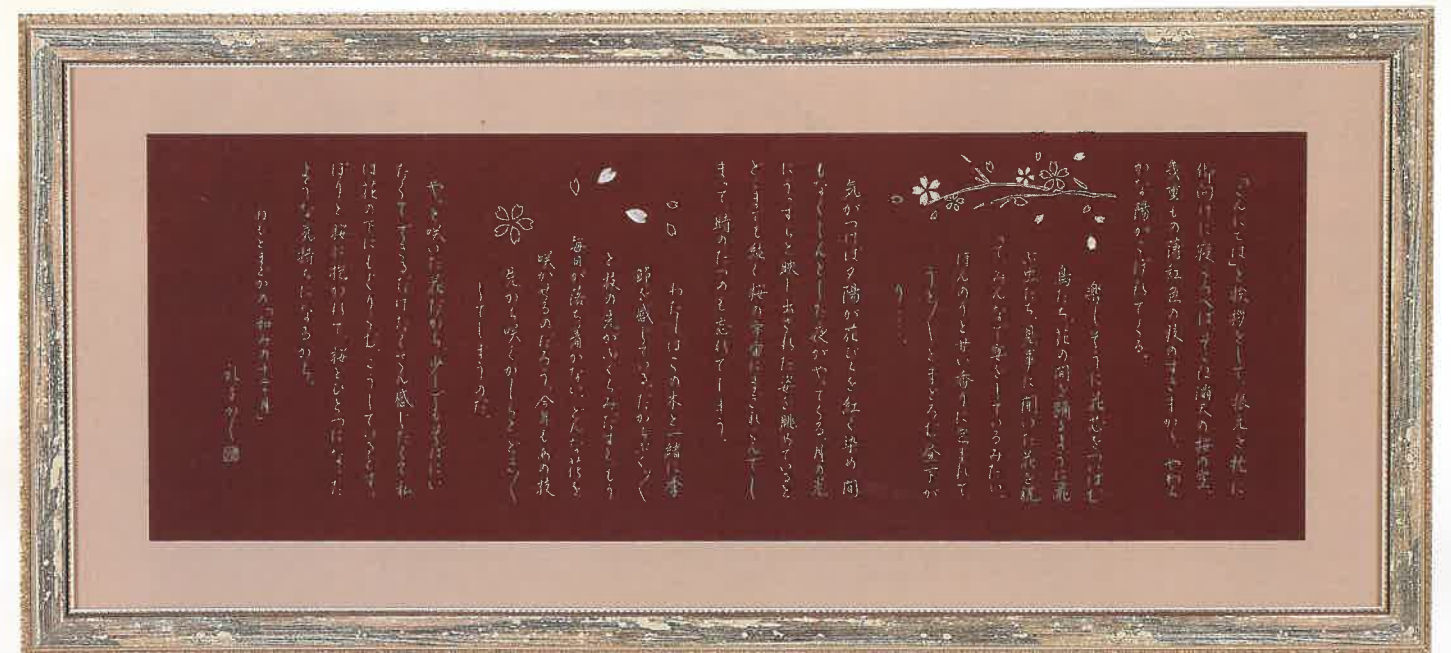 「こんにちは」と挨拶をして、根元を枕に
仰向けに寝ころべばそこは満天の桜の空。
幾重もの薄紅色の枝のすきまから、やわら
かな陽がこぼれてくる。
楽しそうに花芯をつばむ
鳥たち、花の間を踊るように飛
ぶ虫たち、見事に開いた花を競
ってみんなで宴をしているみたい。
ほんのりと甘い香りに包まれて
うとうとまどろむ昼下が
り…。
気がつけば夕陽が花びらを紅く染め、間
もなくしんとした夜がやってくる。月の光
にうっすらと映し出された姿を眺めていると
どこまでも続く桜の宇宙にまぎれこんでし
まって時のたつのも忘れてしまう。
わたしはこの木と一緒に季
節を感じている。だからぷくっ
と枝の先がふくらみだすと、もう
毎日が落ち着かない。どんな花を
咲かせるのだろう、今年もあの枝
先から咲くかしらとどきどき
してしまうのだ。
やっと咲いた花だから、少しでもそばにい
たくて、できるだけたくさん感じたくて、私
は花の下にもぐりこむ。こうしていると、す
っぽりと桜に抱かれて、桜とひとつになった
ような気持ちになるから。
「和みの十二ヶ月」